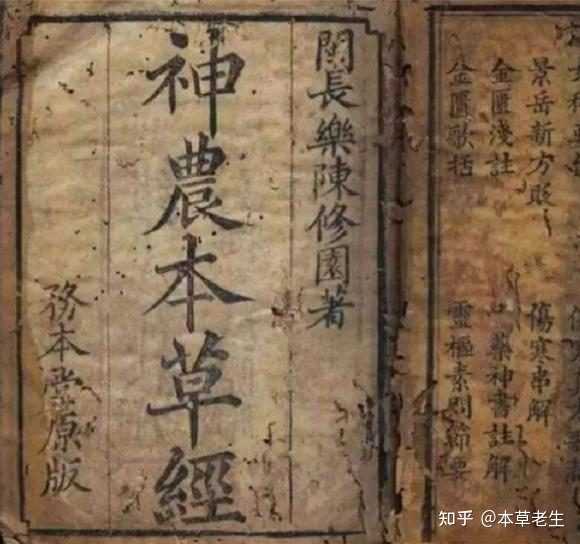 景岳新方砭
傷寒串解
金匱淺註
藥神書註解
金匱歌括
靈樞素問節要
閩長樂陳修園著
神農本草經
務本堂原版
知乎 @本草老生